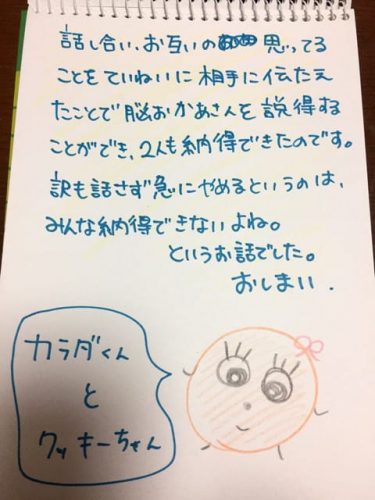 話し合い、お互いの思ってる
ことをていねいに相手に伝たえ
たことで脳おかあさんを説得する
ことができ、2人も納得できたのです。
訳も話さず急にやめるというのは、
みんな納得できないよね。
というお話でした。
おしまい.
カラダくん
と
クッキーちゃん